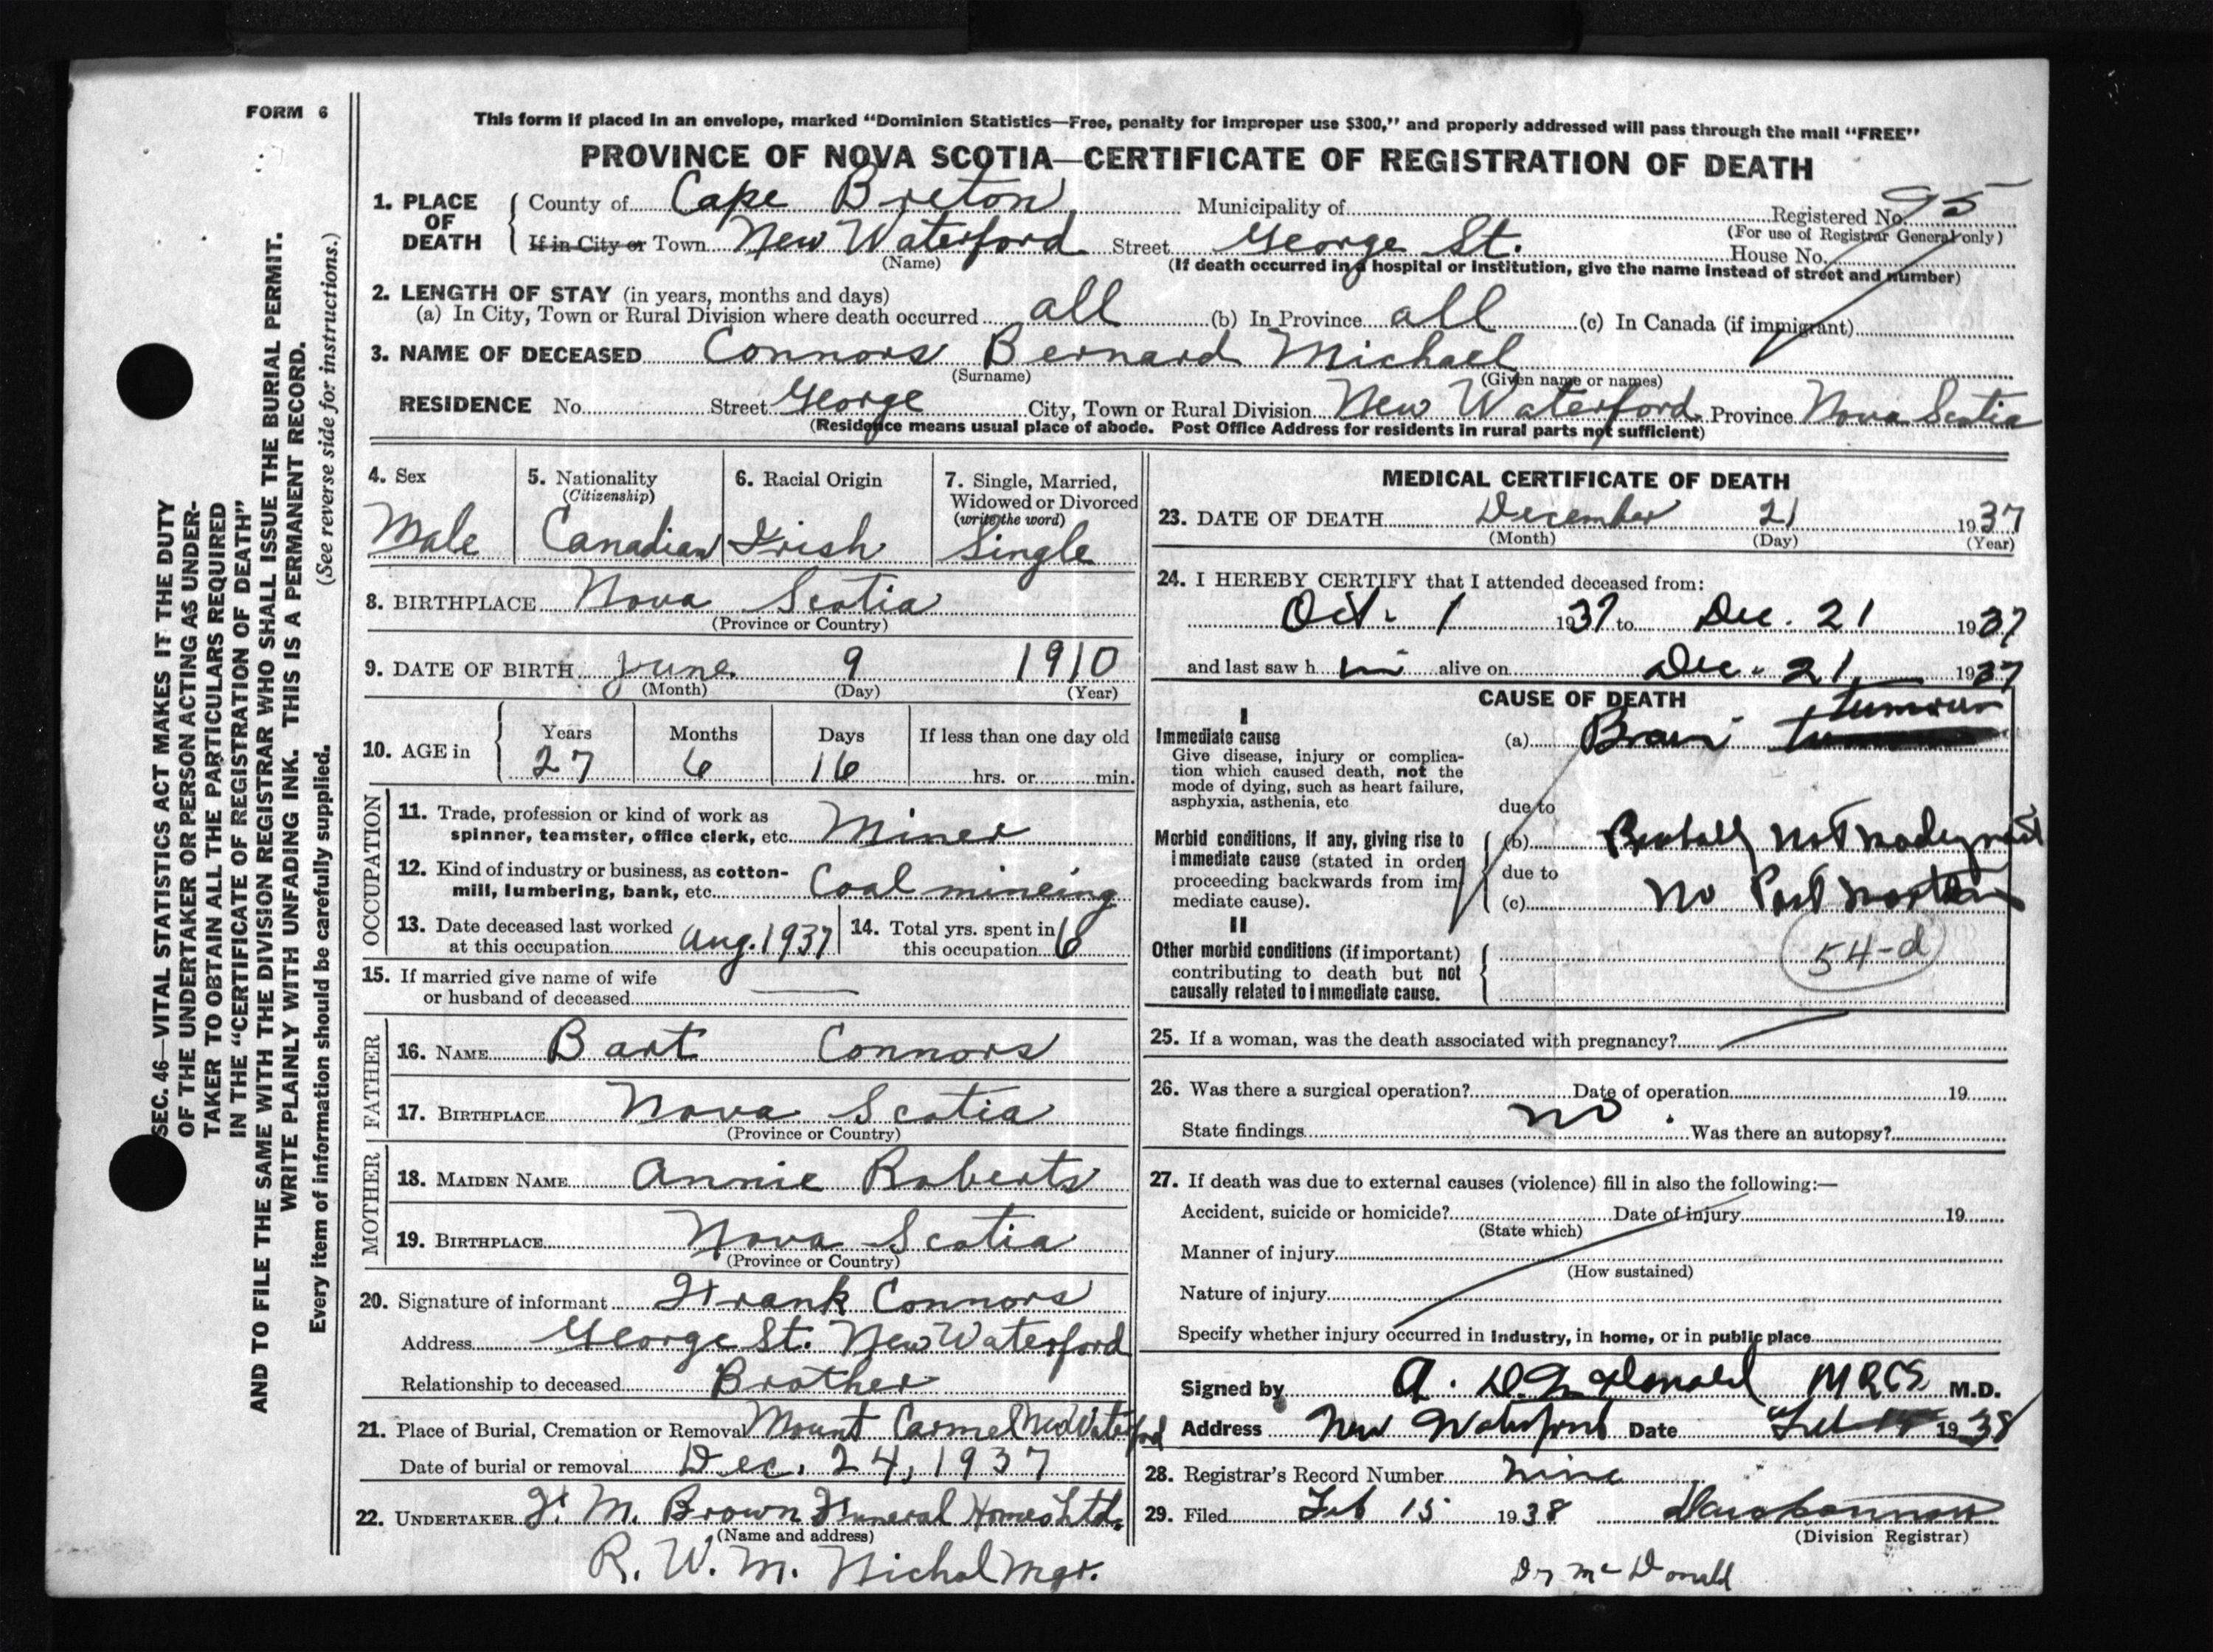 FORM 6
This form if placed in an envelope, marked “Dominion Statistics—Free, penalty for improper use $300,” and properly addressed will pass through the mail “FREE”
PROVINCE OF NOVA SCOTIA—CERTIFICATE OF REGISTRATION OF DEATH
1. PLACE OF DEATH County of Cape Breton Municipality of Registered No. 95
(For use of Registrar General only)
If in City or Town New Waterford Street George St. House No.
(Name) (If death occurred in a hospital or institution, give the name instead of street and number)
2. LENGTH OF STAY (in years, months and days)
(a) In City, Town or Rural Division where death occurred all (b) In Province all (c) In Canada (if immigrant)
3. NAME OF DECEASED Connors Bernard Michael
(Surname) (Given name or names)
RESIDENCE No. Street George City, Town or Rural Division New Waterford Province Nova Scotia
(Residence means usual place of abode. Post Office Address for residents in rural parts not sufficient)
4. Sex 5. Nationality (Citizenship) 6. Racial Origin 7. Single, Married, Widowed or Divorced (write the word)
Male Canadian Irish Single
8. BIRTHPLACE Nova Scotia
(Province or Country)
9. DATE OF BIRTH June 9 1910
(Month) (Day) (Year)
10. AGE in Years Months Days If less than one day old
27 6 16 hrs. or min.
OCCUPATION
11. Trade, profession or kind of work as
spinner, teamster, office clerk, etc. Miner
12. Kind of industry or business, as cotton-
mill, lumbering, bank, etc. Coal mineing
13. Date deceased last worked
at this occupation Aug. 1937
14. Total yrs. spent in
this occupation 6
15. If married give name of wife
or husband of deceased
FATHER
16. NAME Bart Connors
17. BIRTHPLACE Nova Scotia
(Province or Country)
MOTHER
18. MAIDEN NAME Annie Roberts
19. BIRTHPLACE Nova Scotia
(Province or Country)
20. Signature of informant Frank Connors
Address George St. New Waterford
Relationship to deceased Brother
21. Place of Burial, Cremation or Removal Mount Carmel New Waterford
Date of burial or removal Dec. 24, 1937
22. UNDERTAKER F. M. Brown Funeral Homes Ltd.
(Name and address)
R. W. M. Nichol Mgr.
MEDICAL CERTIFICATE OF DEATH
23. DATE OF DEATH December 21 1937
(Month) (Day) (Year)
24. I HEREBY CERTIFY that I attended deceased from:
Oct. 1 1937 to Dec. 21 1937
and last saw h im alive on Dec. 21 1937
CAUSE OF DEATH
I
Immediate cause
Give disease, injury or complica-
tion which caused death, not the
mode of dying, such as heart failure,
asphyxia, asthenia, etc
(a) Brain tumour
due to
Morbid conditions, if any, giving rise to
immediate cause (stated in order
proceeding backwards from im-
mediate cause).
(b) Probably not
due to
(c) No Post mortem
II
Other morbid conditions (if important)
contributing to death but not
causally related to immediate cause.
54-d
25. If a woman, was the death associated with pregnancy?
26. Was there a surgical operation? Date of operation 19
no
State findings Was there an autopsy?
27. If death was due to external causes (violence) fill in also the following:—
Accident, suicide or homicide? Date of injury 19
(State which)
Manner of injury
(How sustained)
Nature of injury
Specify whether injury occurred in industry, in home, or in public place
Signed by A. D. McDonald MRCS M.D.
Address New Waterford Date Feb 19 38
28. Registrar's Record Number nine
29. Filed Feb 15 1938
(Division Registrar)
Dr McDonald
SEC. 46—VITAL STATISTICS ACT MAKES IT THE DUTY
OF THE UNDERTAKER OR PERSON ACTING AS UNDER-
TAKER TO OBTAIN ALL THE PARTICULARS REQUIRED
IN THE “CERTIFICATE OF REGISTRATION OF DEATH”
AND TO FILE THE SAME WITH THE DIVISION REGISTRAR WHO SHALL ISSUE THE BURIAL PERMIT.
WRITE PLAINLY WITH UNFADING INK. THIS IS A PERMANENT RECORD.
Every item of information should be carefully supplied. (See reverse side for instructions.)